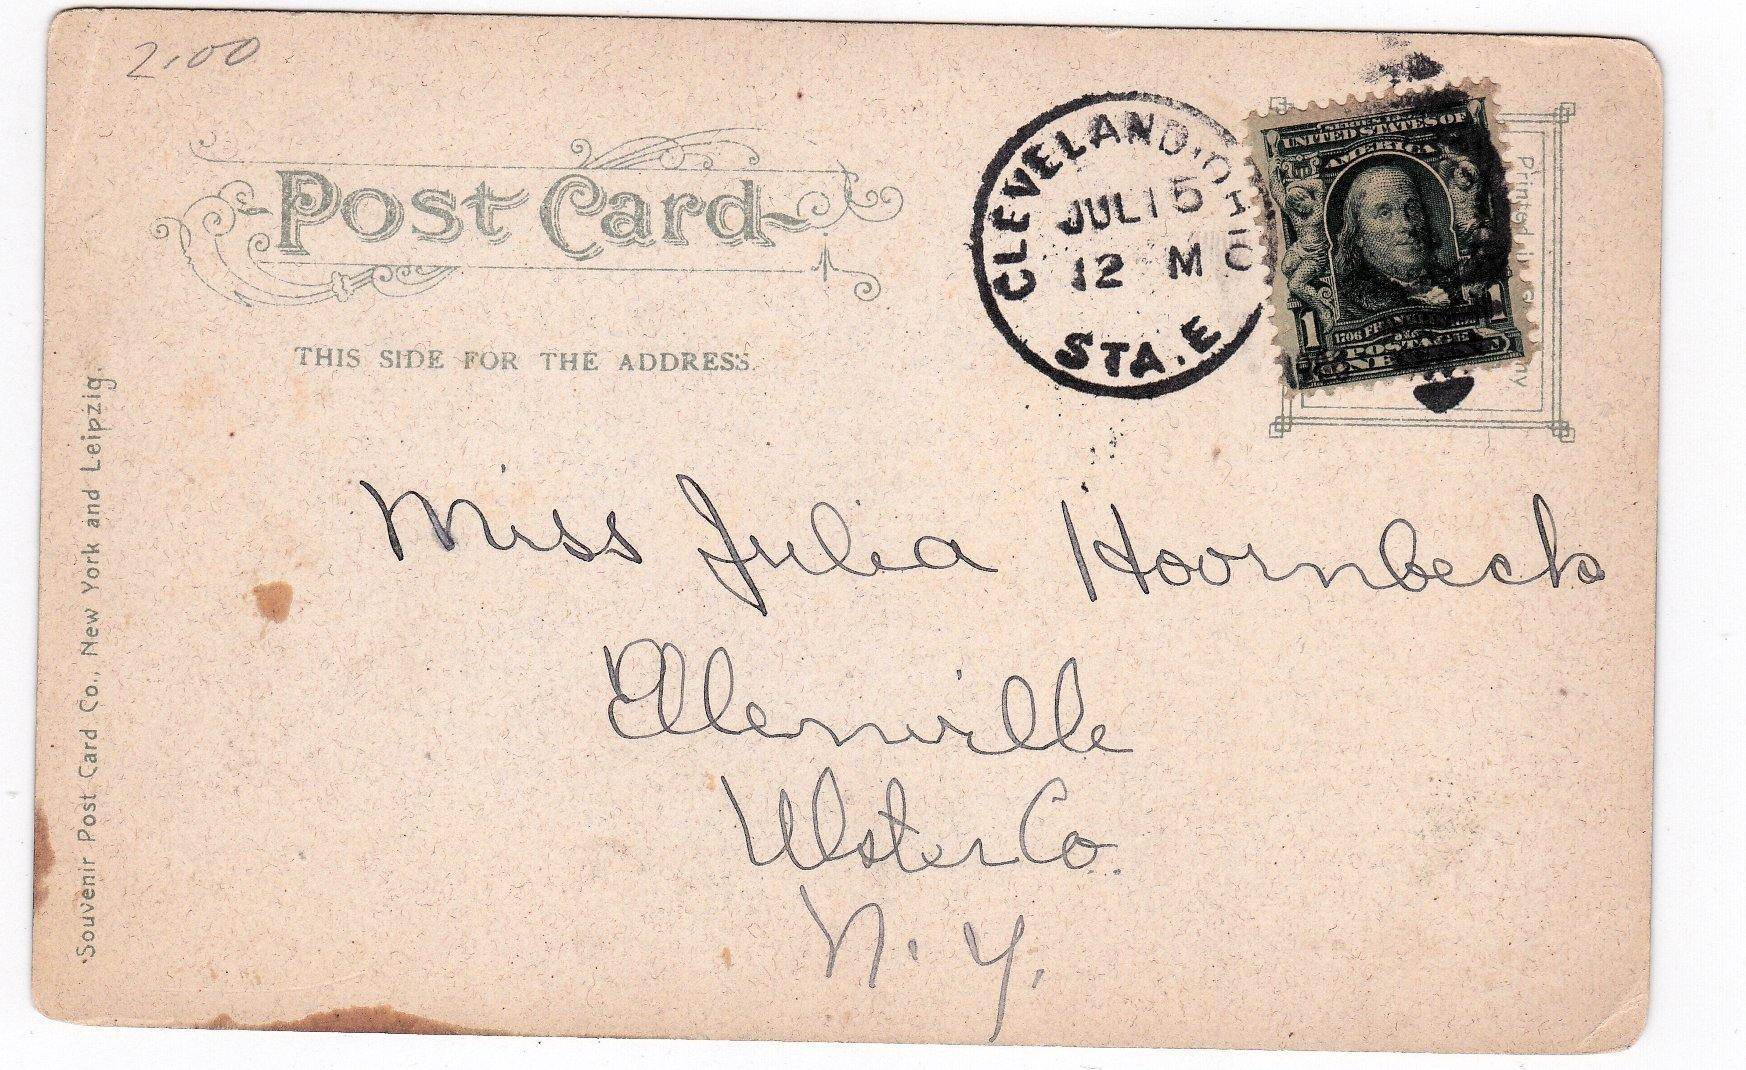 2.00
Post Card
THIS SIDE FOR THE ADDRESS.
CLEVELAND, OHIO
JUL 15
12 M
STA. E
SERIES 1902
UNITED STATES OF
AMERICA
1706 FRANKLIN
POSTAGE
1 1
ONE CENT
Printed in Germany
Miss Julia Hoornbeck
Ellenville
Ulster Co.
N. Y.
Souvenir Post Card Co., New York and Leipzig.